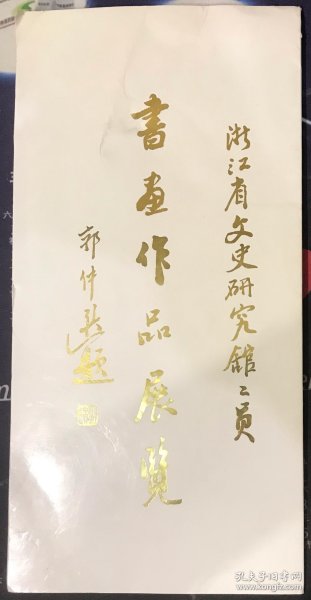 浙江省文史研究館〻員
書畫作品展覽
郭仲選題
孔夫子旧书网
www.kongfz.com